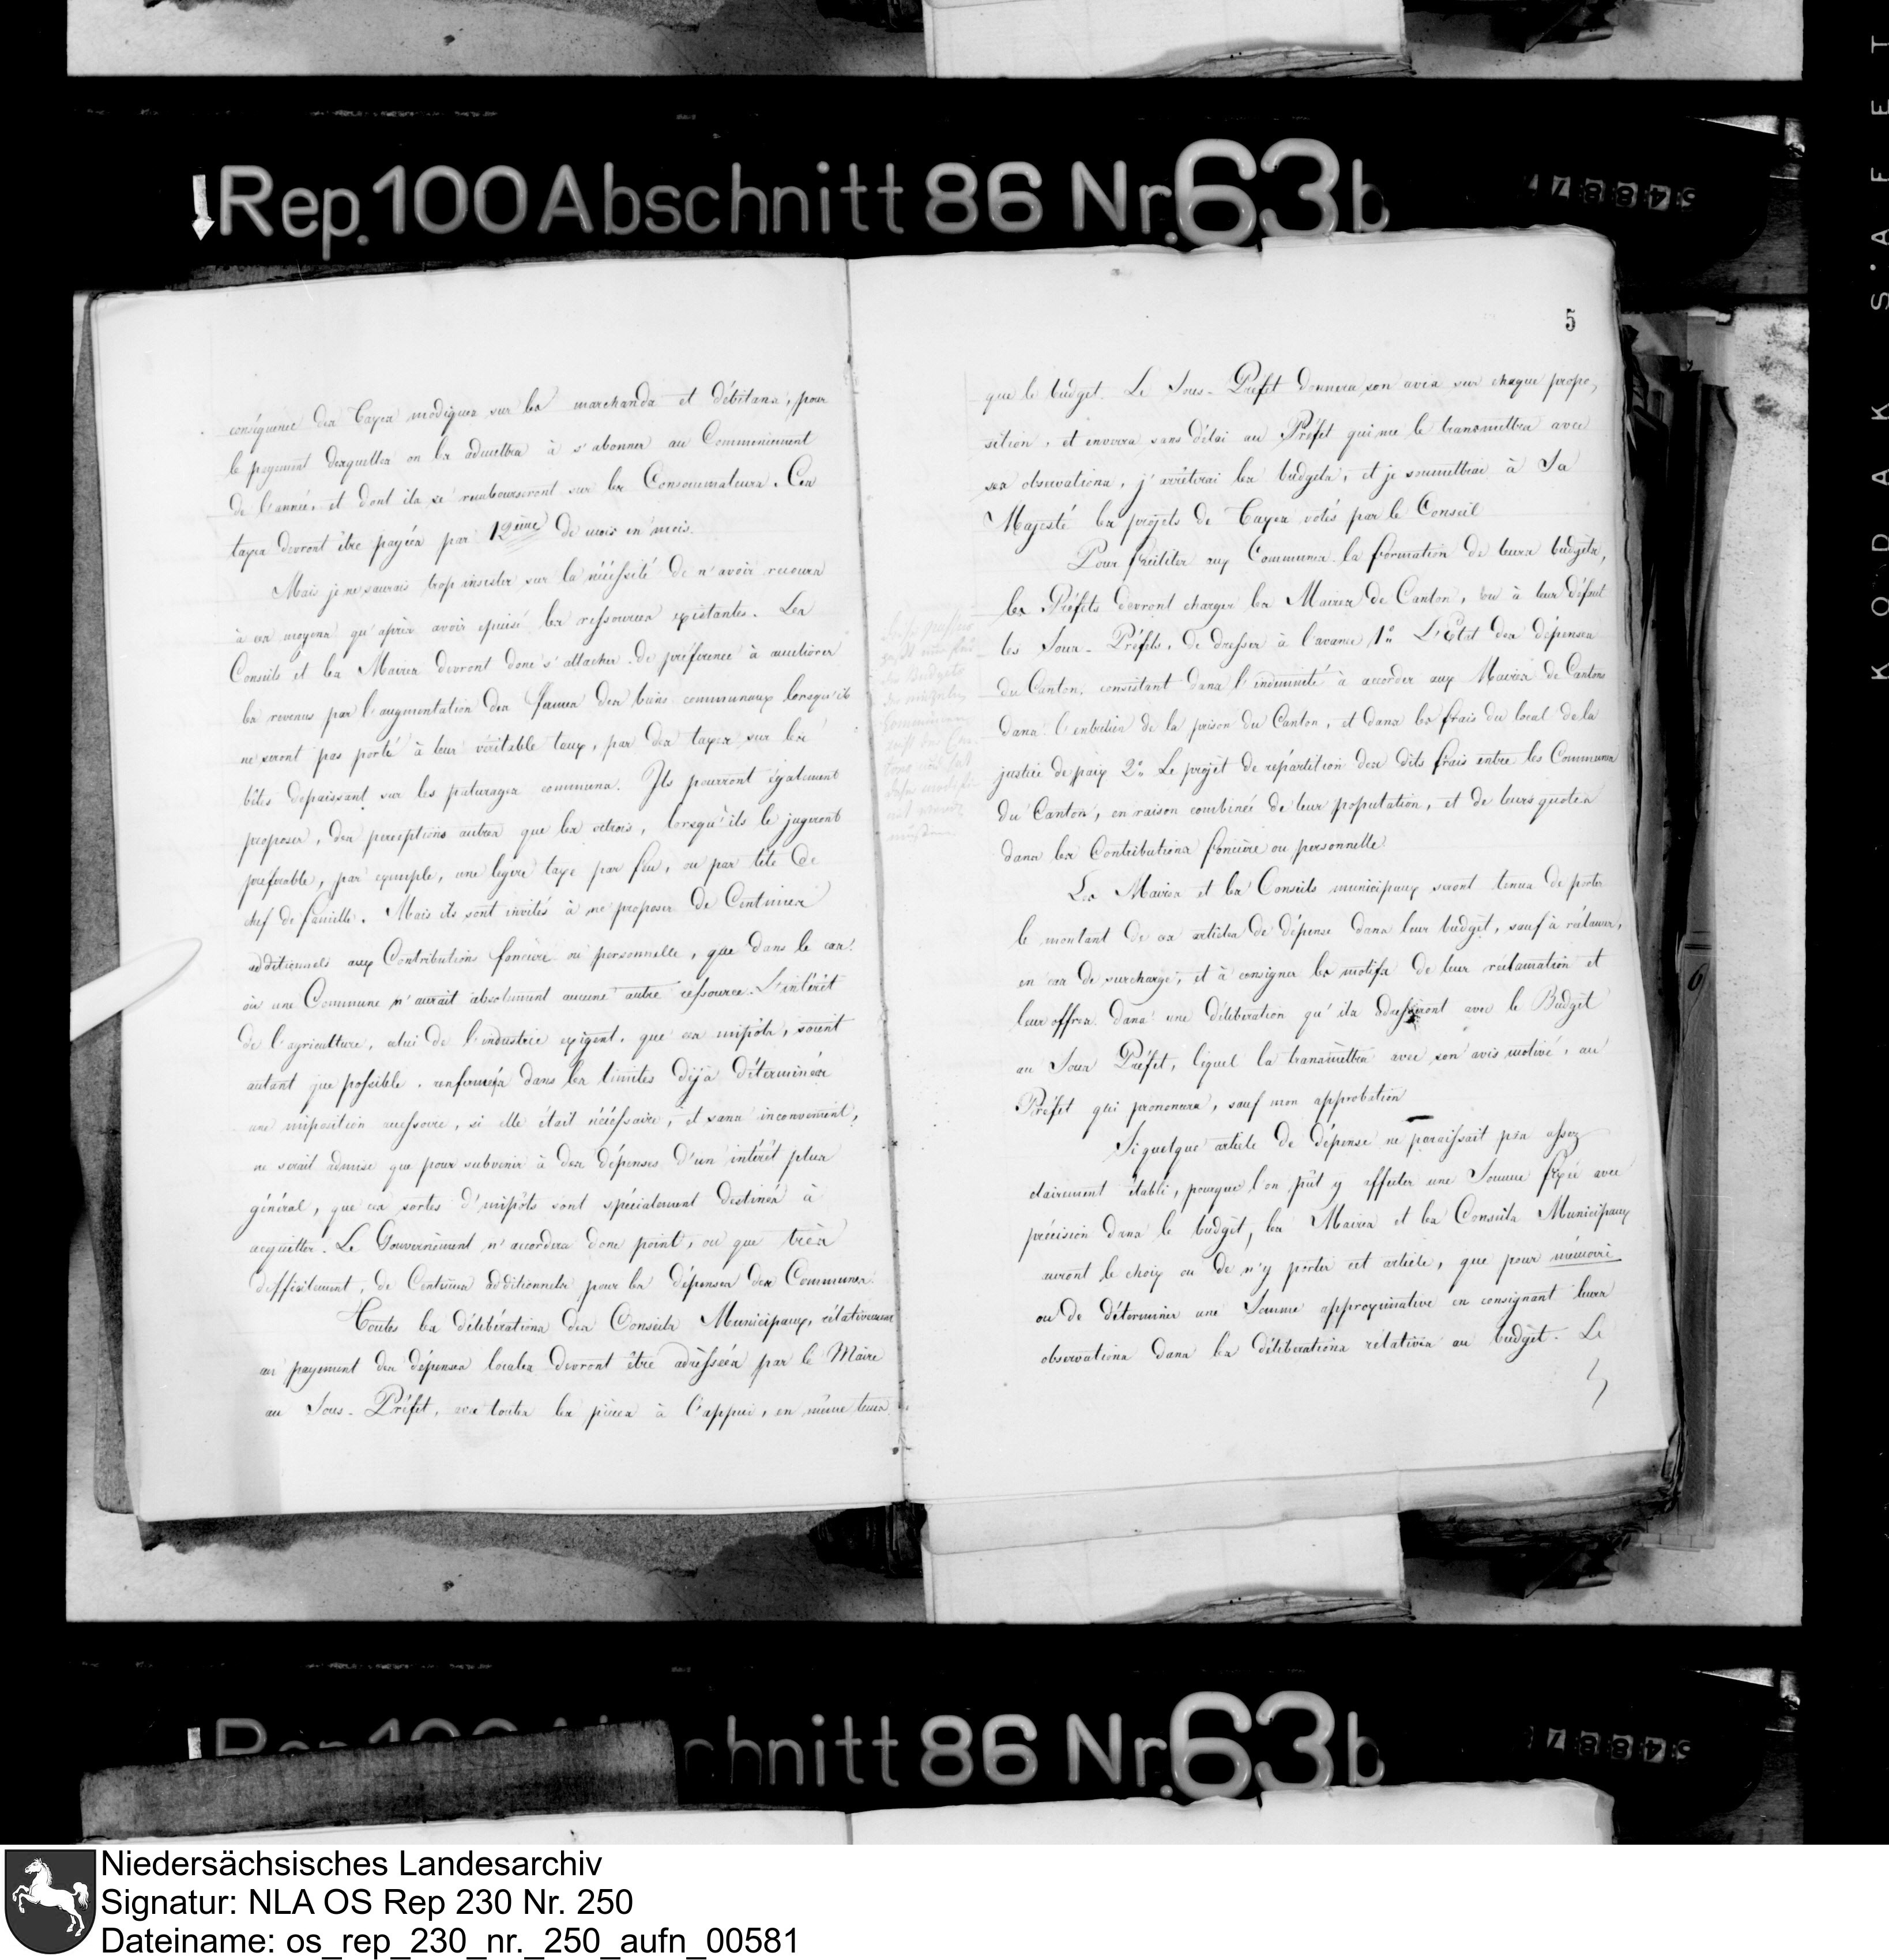 KODAK S'AFET
Rep. 100 Abschnitt 86 Nr. 63b
conséquence des taxes modiques sur les marchands et débitans, pour
le payement desquelles on les admettra à s'abonner au Commencement
de l'année, et dont ils se rembourseront sur les Consommateurs. Ces
taxes devront être payées par 12ème de mois en mois.
Mais je ne saurais trop insister sur la nécessité de n'avoir recours
à ces moyens qu'après avoir épuisé les ressources existantes. Les
Conseils et les Maires devront donc s'attacher de préférence à améliorer
les revenus par l'augmentation des fermes des biens communaux lorsqu'ils
ne seront pas porté à leur véritable taux, par des taxes sur les
bêtes depaissant sur les paturages communs. Ils pourront également
proposer, des perceptions autres que les octrois, lorsqu'ils le jugeront
préferable, par exemple, une legère taxe par feu, ou par tête de
chef de famille. Mais ils sont invités à ne proposer de Centimes
additionnels aux Contributions foncière ou personnelle, que dans le cas
où une Commune n'aurait absolument aucune autre ressource. L'intérêt
de l'agriculture, celui de l'industrie exigent, que ces impôts, soient
autant que possible, renfermés dans les limites déjà déterminées
une imposition accessoire, si elle était nécessaire, et sans inconvenient,
ne serait admise que pour subvenir à des dépenses d'un intérêt plus
général, que ces sortes d'impôts sont spécialement destinés à
acquitter. Le Gouvernement n'accordera donc point, ou que très
difficilement, de Centimes additionnels pour les dépenses des Communes.
Toutes les délibérations des Conseils Municipaux, rélativement
au payement des dépenses locales devront être adressées par le Maire
au Sous-Préfet, avec toutes les pièces à l'appui, en même tems
5
que le budget. Le Sous-Préfet donnera son avis sur chaque propo,
sition, et enverra sans délai au Préfet qui me le transmettra avec
ses observations, j'arrêterai les budgets, et je soumettrai à Sa
Majesté les projets de Taxes votés par le Conseil
Pour faciliter aux Communes la formation de leurs budgets,
les Préfets devront charger les Maires de Canton, ou à leur défaut
les Sous-Préfets, de dresser à l'avance 1° L'Etat des dépenses
du Canton, consistant dans l'indemnité à accorder aux Maires de Canton
dans l'entretien de la prison du Canton, et dans les frais du local de la
justice de paix 2° Le projet de répartition des dits frais entre les Communes
du Canton, en raison combinée de leur population, et de leurs quotes
dans les Contributions foncière ou personnelle.
Les Maires et les Conseils municipaux seront tenus de porter
le montant de ces articles de dépense dans leur budget, sauf à réclamer,
en cas de surcharge, et à consigner les motifs de leur réclamation et
leur offres dans une délibération qu'ils adresseront avec le Budget
au Sous Préfet, lequel la transmettra avec son avis motivé, au
Préfet qui prononcera, sauf mon approbation
Si quelque article de dépense ne paraissait pas assez
clairement établi, pourque l'on pût y affecter une Somme fixée avec
précision dans le budget, les Maires et les Conseils Municipaux
auront le choix ou de n'y porter cet article, que pour mémoire
ou de déterminer une Somme approximative en consignant leurs
observations dans les délibérations relatives au budget. Le
6
chnitt 86 Nr. 63b
Niedersächsisches Landesarchiv
Signatur: NLA OS Rep 230 Nr. 250
Dateiname: os_rep_230_nr._250_aufn_00581